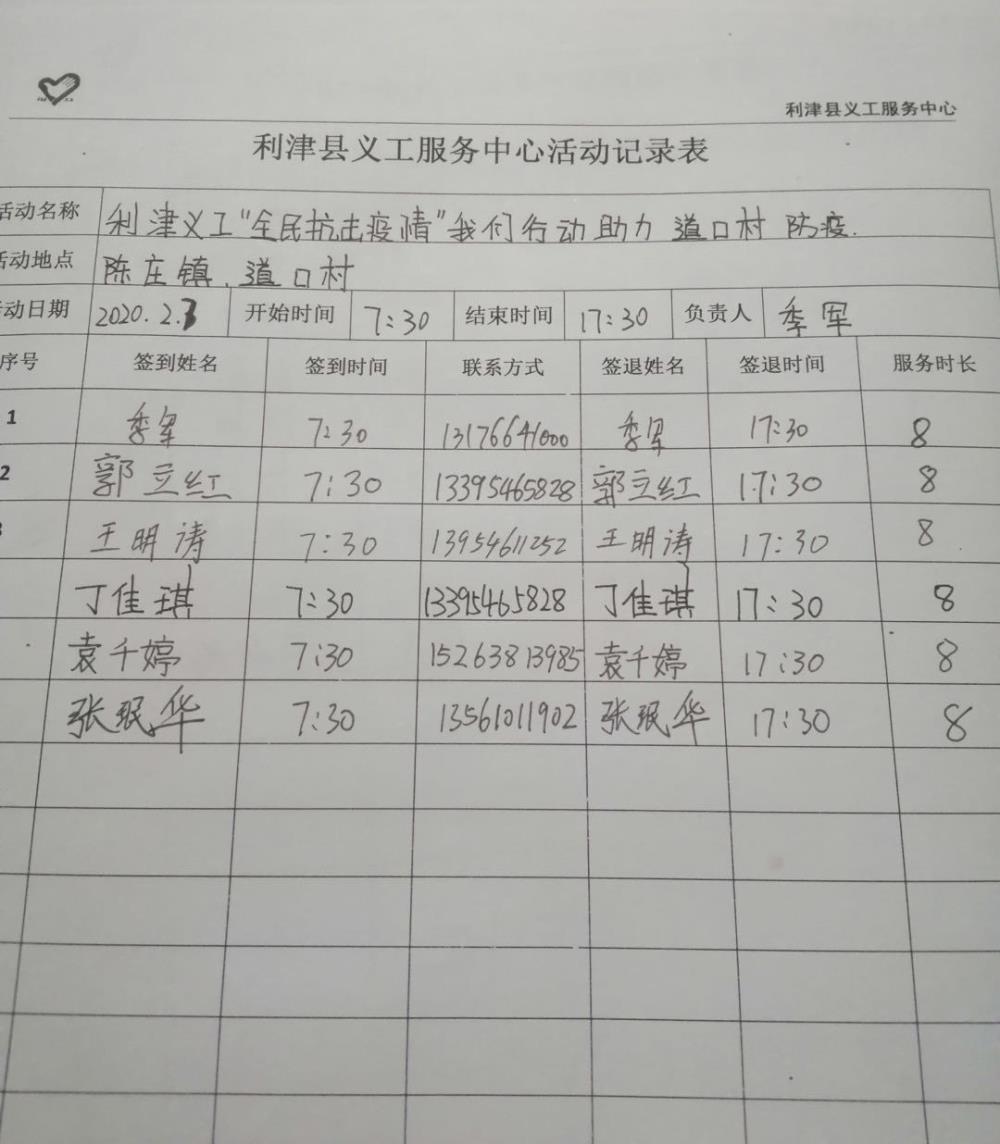 利津县义工服务中心
利津县义工服务中心活动记录表
活动名称 利津义工“全民抗击疫情”我们行动助力 道口村 防疫.
活动地点 陈庄镇.道口村
动日期 2020.2.3 开始时间 7:30 结束时间 17:30 负责人 季军
序号 签到姓名 签到时间 联系方式 签退姓名 签退时间 服务时长
1 季军 7:30 13176641000 季军 17:30 8
2 郭立红 7:30 13395465828 郭立红 17:30 8
王明涛 7:30 13954611252 王明涛 17:30 8
丁佳琪 7:30 13395465828 丁佳琪 17:30 8
袁千婷 7:30 15263813985 袁千婷 17:30 8
张珉华 7:30 13561011902 张珉华 17:30 8